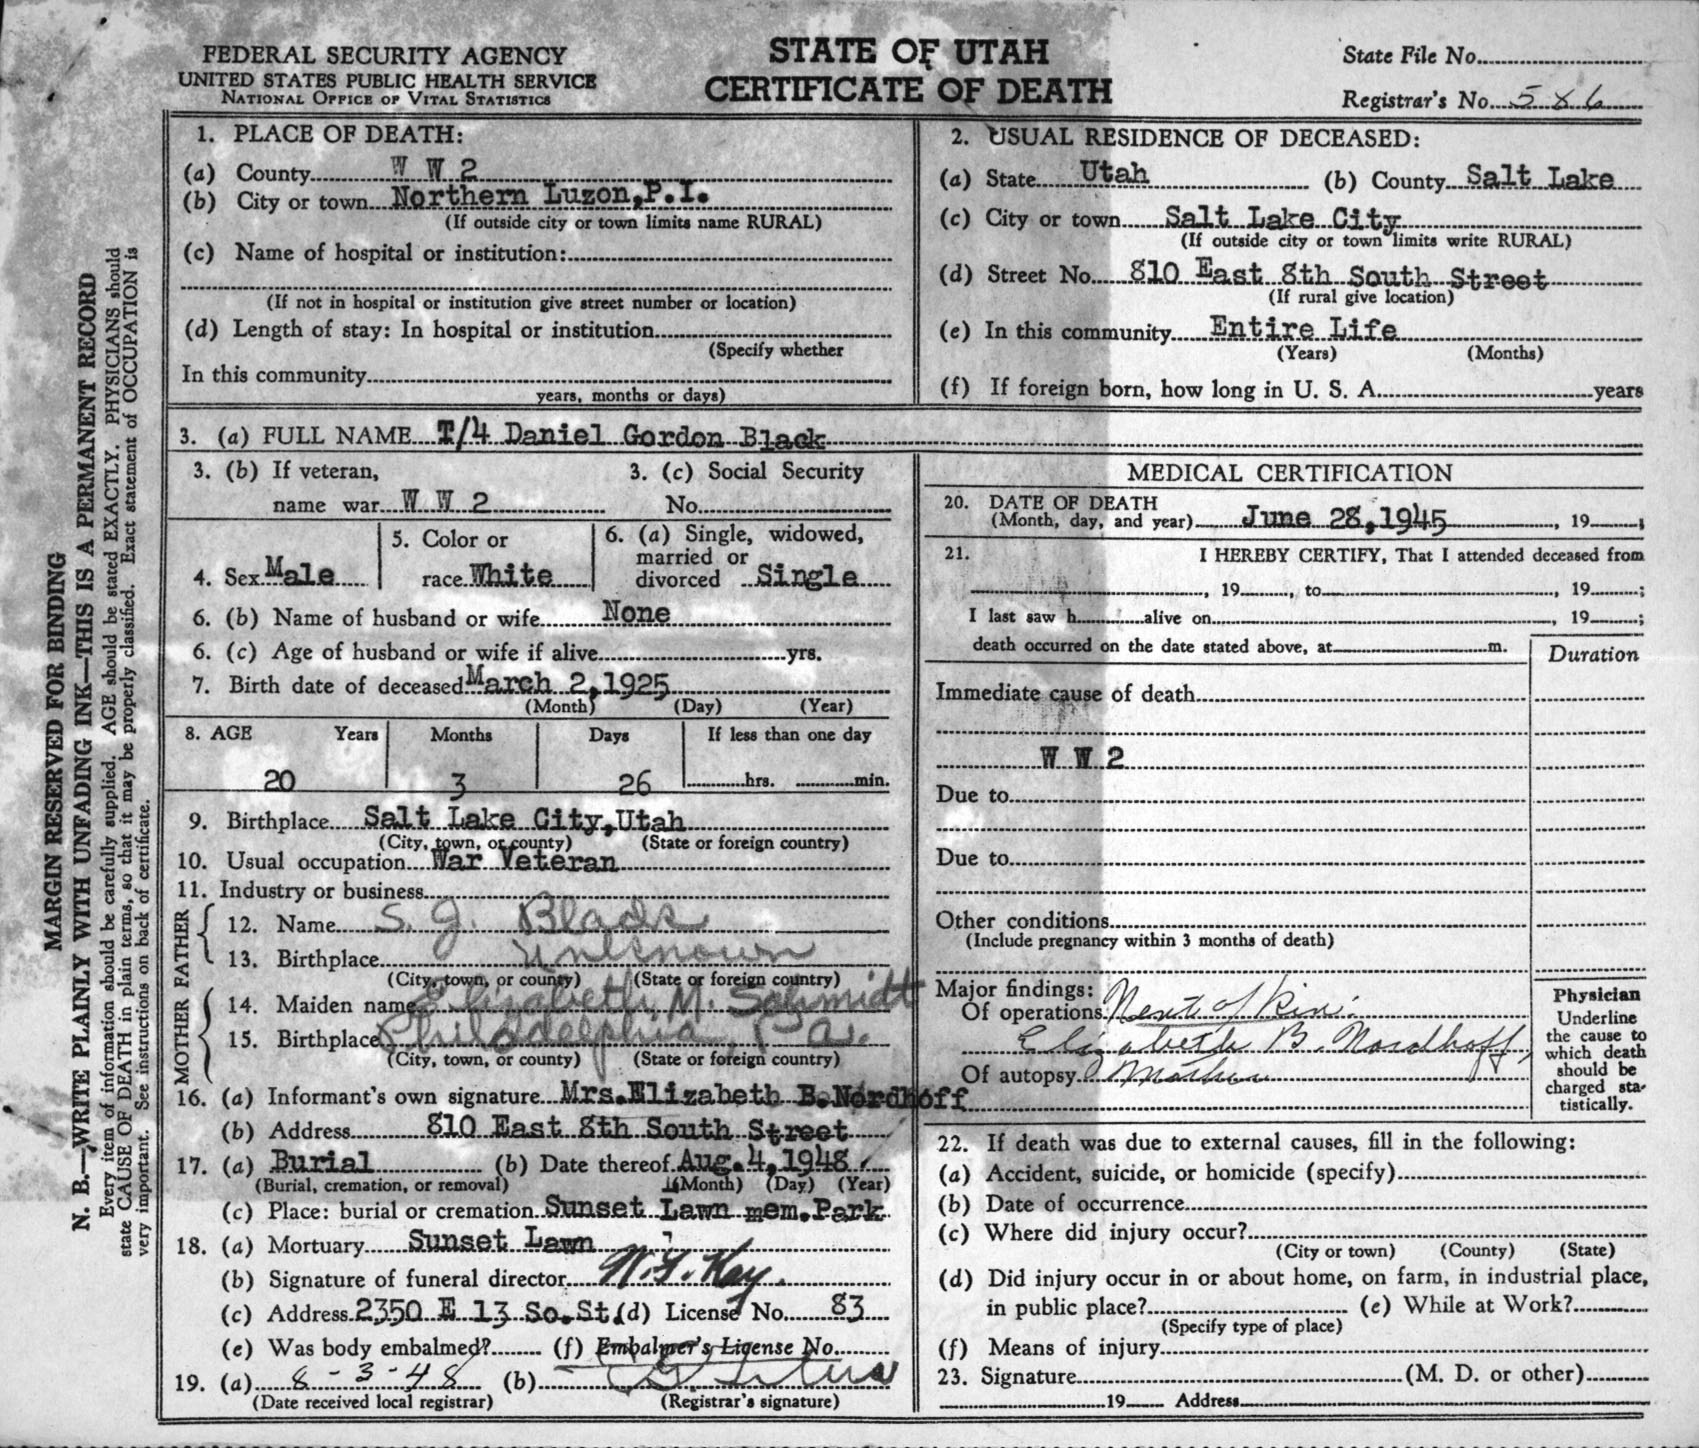 FEDERAL SECURITY AGENCY
UNITED STATES PUBLIC HEALTH SERVICE
NATIONAL OFFICE OF VITAL STATISTICS
STATE OF UTAH
CERTIFICATE OF DEATH
State File No.
Registrar's No. 586
MARGIN RESERVED FOR BINDING
N. B.—WRITE PLAINLY WITH UNFADING INK—THIS IS A PERMANENT RECORD
Every item of information should be carefully supplied. AGE should be stated EXACTLY. PHYSICIANS should
state CAUSE OF DEATH in plain terms, so that it may be properly classified. Exact statement of OCCUPATION is
very important. See instructions on back of certificate.
1. PLACE OF DEATH:
(a) County W W 2
(b) City or town Northern Luzon,P.I.
(If outside city or town limits name RURAL)
(c) Name of hospital or institution:
(If not in hospital or institution give street number or location)
(d) Length of stay: In hospital or institution
(Specify whether
In this community
years, months or days)
2. USUAL RESIDENCE OF DECEASED:
(a) State Utah (b) County Salt Lake
(c) City or town Salt Lake City
(If outside city or town limits write RURAL)
(d) Street No. 810 East 8th South Street
(If rural give location)
(e) In this community Entire Life
(Years) (Months)
(f) If foreign born, how long in U. S. A. years
3. (a) FULL NAME T/4 Daniel Gordon Black
3. (b) If veteran, 3. (c) Social Security
name war W W 2 No.
4. Sex Male
5. Color or
race White
6. (a) Single, widowed,
married or
divorced Single
6. (b) Name of husband or wife None
6. (c) Age of husband or wife if alive yrs.
7. Birth date of deceased March 2,1925
(Month) (Day) (Year)
8. AGE Years Months Days If less than one day
20 3 26 hrs. min.
9. Birthplace Salt Lake City,Utah
(City, town, or county) (State or foreign country)
10. Usual occupation War Veteran
11. Industry or business
FATHER
12. Name S. J. Black
13. Birthplace unknown
(City, town, or county) (State or foreign country)
MOTHER
14. Maiden name Elizabeth M. Schmidt
15. Birthplace Philadelphia, Pa.
(City, town, or county) (State or foreign country)
16. (a) Informant's own signature Mrs.Elizabeth B.Nordhoff
(b) Address 810 East 8th South Street
17. (a) Burial (b) Date thereof Aug.4,1948
(Burial, cremation, or removal) (Month) (Day) (Year)
(c) Place: burial or cremation Sunset Lawn mem.Park
18. (a) Mortuary Sunset Lawn
(b) Signature of funeral director
(c) Address 2350 E 13 So.St. (d) License No. 83
(e) Was body embalmed? (f) Embalmer's License No.
19. (a) 8-3-48 (b)
(Date received local registrar) (Registrar's signature)
MEDICAL CERTIFICATION
20. DATE OF DEATH
(Month, day, and year) June 28,1945, 19 ;
21. I HEREBY CERTIFY, That I attended deceased from
, 19 , to , 19 ;
I last saw h alive on , 19 ;
death occurred on the date stated above, at m.
Duration
Immediate cause of death
W W 2
Due to
Due to
Other conditions
(Include pregnancy within 3 months of death)
Major findings:
Of operations Next of Kin:
Elizabeth B. Nordhoff,
Of autopsy Mother
Physician
Underline
the cause to
which death
should be
charged sta-
tistically.
22. If death was due to external causes, fill in the following:
(a) Accident, suicide, or homicide (specify)
(b) Date of occurrence
(c) Where did injury occur?
(City or town) (County) (State)
(d) Did injury occur in or about home, on farm, in industrial place,
in public place? (e) While at Work?
(Specify type of place)
(f) Means of injury
23. Signature (M. D. or other)
19 Address